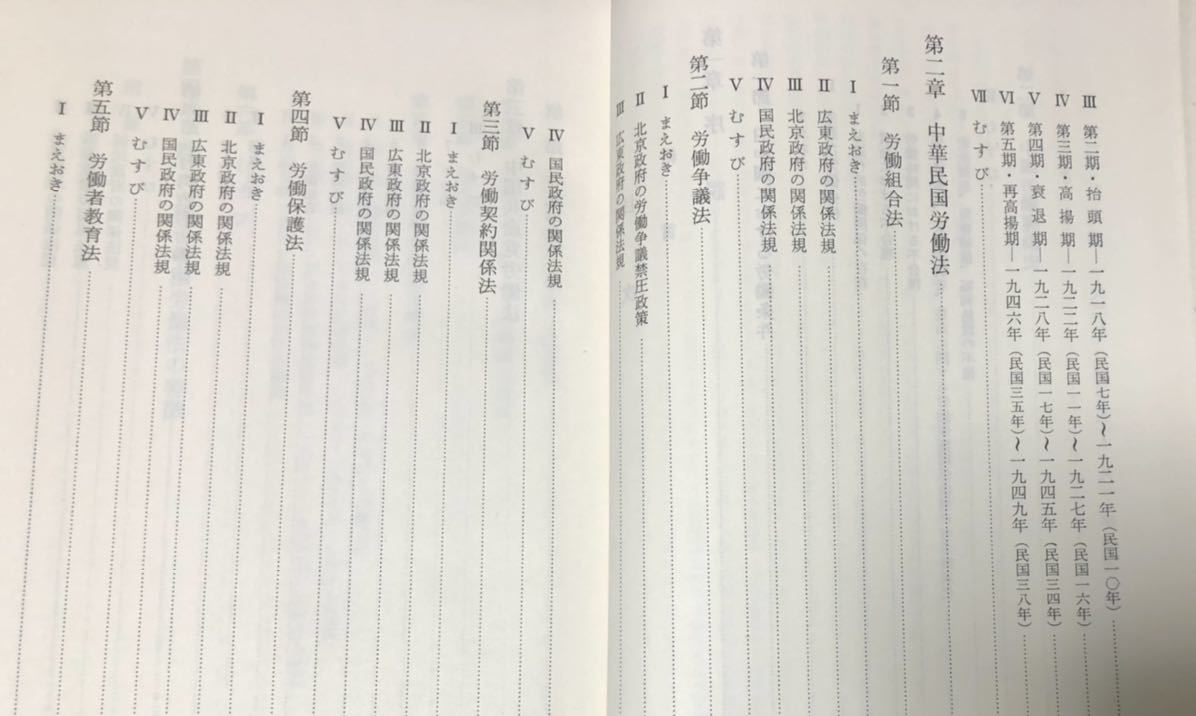 Ⅲ 第二期・抬頭期―一九一八年（民国七年）～一九二一年（民国一〇年）
Ⅳ 第三期・高揚期―一九二二年（民国一一年）～一九二七年（民国一六年）
Ⅴ 第四期・衰退期―一九二八年（民国一七年）～一九四五年（民国三四年）
Ⅵ 第五期・再高揚期―一九四六年（民国三五年）～一九四九年（民国三八年）
Ⅶ むすび
第二章 中華民国労働法
第一節 労働組合法
Ⅰ まえおき
Ⅱ 広東政府の関係法規
Ⅲ 北京政府の関係法規
Ⅳ 国民政府の関係法規
Ⅴ むすび
第二節 労働争議法
Ⅰ まえおき
Ⅱ 北京政府の労働争議禁圧政策
Ⅲ 広東政府の関係法規
Ⅳ 国民政府の関係法規
Ⅴ むすび
第三節 労働契約関係法
Ⅰ まえおき
Ⅱ 北京政府の関係法規
Ⅲ 広東政府の関係法規
Ⅳ 国民政府の関係法規
Ⅴ むすび
第四節 労働保護法
Ⅰ まえおき
Ⅱ 北京政府の関係法規
Ⅲ 広東政府の関係法規
Ⅳ 国民政府の関係法規
Ⅴ むすび
第五節 労働者教育法
Ⅰ まえおき